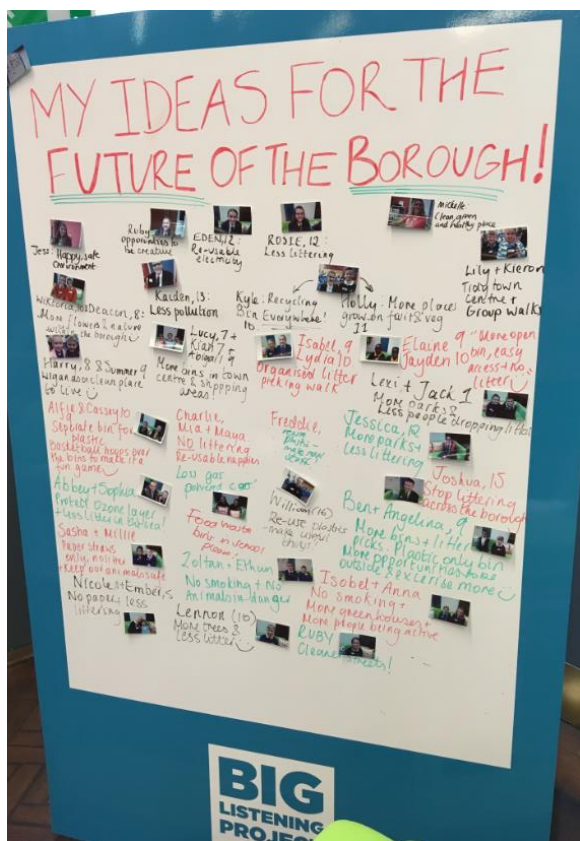 MY IDEAS FOR THE
FUTURE OF THE BOROUGH!
Jess: Happy, safe
environment
Ruby
opportunities to
be creature
EDEN, 12:
Re-usable
electricity
ROSIE, 12:
Less littering
Michelle:
Clean, green
and healthy place
Lily + Kieron
Tidy town
Centre +
Group walks
Wiktoria, 10 Deacon, 8:
More flowers & nature
Kaiden, 13:
Less pollution
Kyle: Recycling
Bin Everywhere!
10
Holly: More places
grow on fruit & veg
11
Harry, 8 & Summer 9
Wigan as a clean place
to live
Lucy, 7 +
Kian 7 5
Abigail 9
More bins in town
centre & shopping
areas!
Isabel, 9
Lydia, 10
Organised litter
picking walk
Elaine 9
Jayden 10
"More open
bin, easy
access + no
litter
Lexi + Jack 1
More parks &
Less people dropping litter
Alfie & Cassey 10
Seperate bin for
plastic
Basketball hoops over
the bins to make it a
fun game
Charlie,
Mia + Maya
NO littering
Re-usable nappies
Less gas
powered cars!
Freddie,
Jessica, 12
More parks +
less littering
Joshua, 15
Stop littering
across the borough
Abbey + Sophia
Protect ozone layer
+ Less litter in
Food waste
bins in school
please!
William (16)
Re-use plastics
- make useful
Ben + Angelina, 9
More bins + litter
picks. Plastic only bin
More opportunities
outside & excerise more
Sasha + Millie
Paper straws
only, no litter
+ Keep our animals safe
Zoltan + Ethan
No smoking + No
Animals in danger
Isobel + Anna
No smoking +
More greenhouses +
More people being active
Nicole + Ember, 5
No papers less
littering
Lennon (10)
More trees &
Less litter
RUBY
Cleaner streets!
BIG
LISTENING
PROJECT